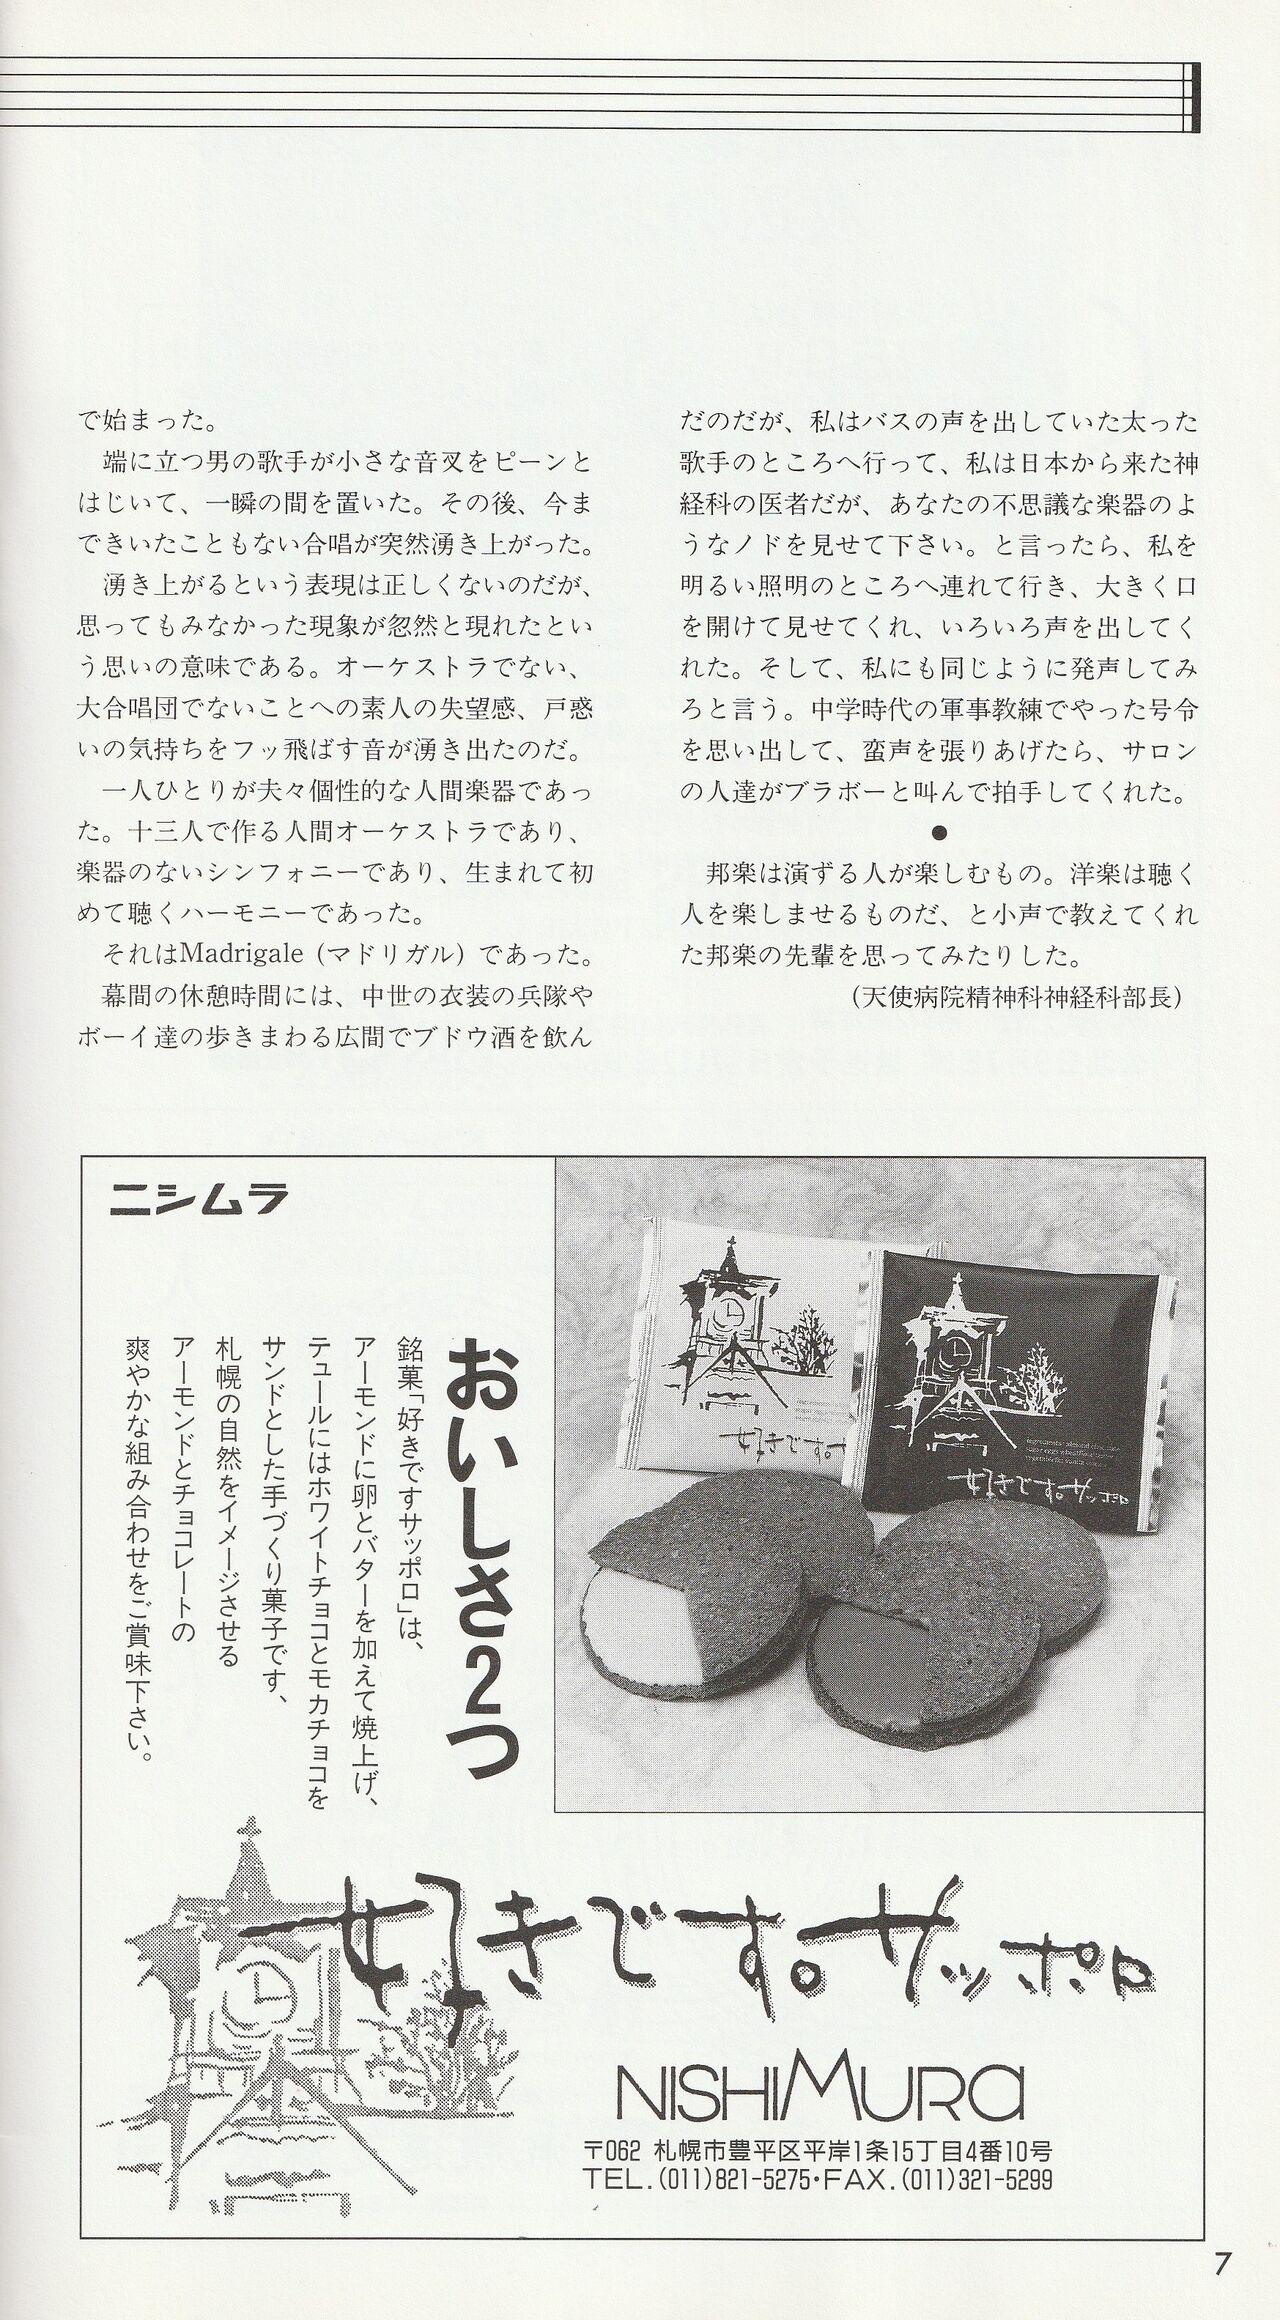 で始まった。
端に立つ男の歌手が小さな音叉をピーンと
はじいて、一瞬の間を置いた。その後、今ま
できいたこともない合唱が突然湧き上がった。
湧き上がるという表現は正しくないのだが、
思ってもみなかった現象が忽然と現れたとい
う思いの意味である。オーケストラでない、
大合唱団でないことへの素人の失望感、戸惑
いの気持ちをフッ飛ばす音が湧き出たのだ。
一人ひとりが夫々個性的な人間楽器であっ
た。十三人で作る人間オーケストラであり、
楽器のないシンフォニーであり、生まれて初
めて聴くハーモニーであった。
それはMadrigale (マドリガル) であった。
幕間の休憩時間には、中世の衣装の兵隊や
ボーイ達の歩きまわる広間でブドウ酒を飲ん
だのだが、私はバスの声を出していた太った
歌手のところへ行って、私は日本から来た神
経科の医者だが、あなたの不思議な楽器のよ
うなノドを見せて下さい。と言ったら、私を
明るい照明のところへ連れて行き、大きく口
を開けて見せてくれ、いろいろ声を出してく
れた。そして、私にも同じように発声してみ
ろと言う。中学時代の軍事教練でやった号令
を思い出して、蛮声を張りあげたら、サロン
の人達がブラボーと叫んで拍手してくれた。
●
邦楽は演ずる人が楽しむもの。洋楽は聴く
人を楽しませるものだ、と小声で教えてくれ
た邦楽の先輩を思ってみたりした。
（天使病院精神科神経科部長）
ニシムラ
おいしさ2つ
銘菓「好きですサッポロ」は、
アーモンドに卵とバターを加えて焼上げ、
テュールにはホワイトチョコとモカチョコを
サンドとした手づくり菓子です、
札幌の自然をイメージさせる
アーモンドとチョコレートの
爽やかな組み合わせをご賞味下さい。
好きです。サッポロ
好きです。サッポロ
好きです。サッポロ
NISHIMURA
〒062 札幌市豊平区平岸1条15丁目4番10号
TEL.(011)821-5275・FAX.(011)321-5299
7